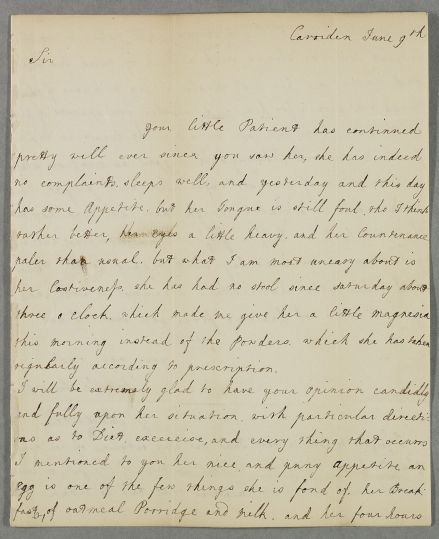 Carriden June 9th
Sir
your little Patient has continued
pretty well ever since you saw her, she has indeed
no complaints, sleeps well, and yesterday and this day
has some Appetite. but her Tongue is still foul, tho I think
rather better, her eyes a little heavy. and her Countenance
paler than usual. but what I am most uneasy about is
her Costiveness, she has had no stool since saturday about
three o clock, which made me give her a little magnesia
this morning instead of the Powders, which she has taken
regularly according to prescription.
I will be extremely glad to have your opinion candidly
and fully upon her situation, with particular directi-
ons as to Diet, excercise, and every thing that occurrs
I mentioned to you her nice and puny appetite an
Egg is one of the few things she is fond of. her Break-
fast, of oatmeal Porridge and milk. and her four hours